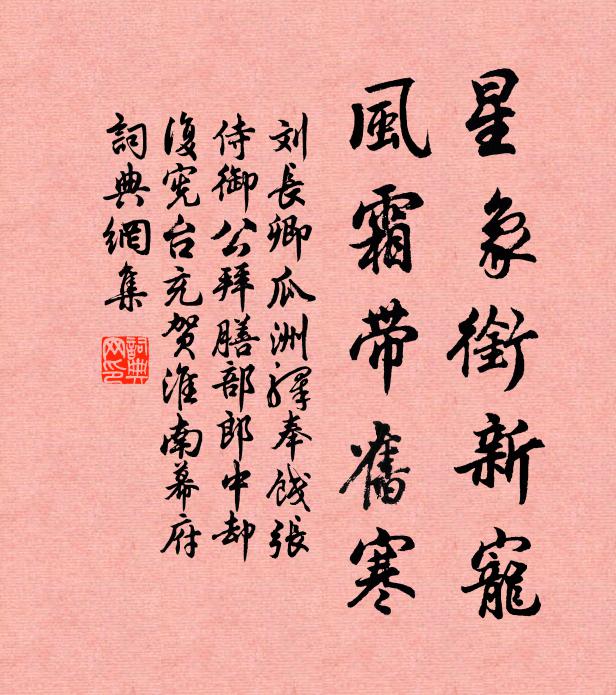 星象銜新寵
風霜带舊寒
刘長卿瓜洲驛奉餞張
侍御公拜膳部郎中却
復宪台充贺淮南幕府
詞典網集
詞典网印